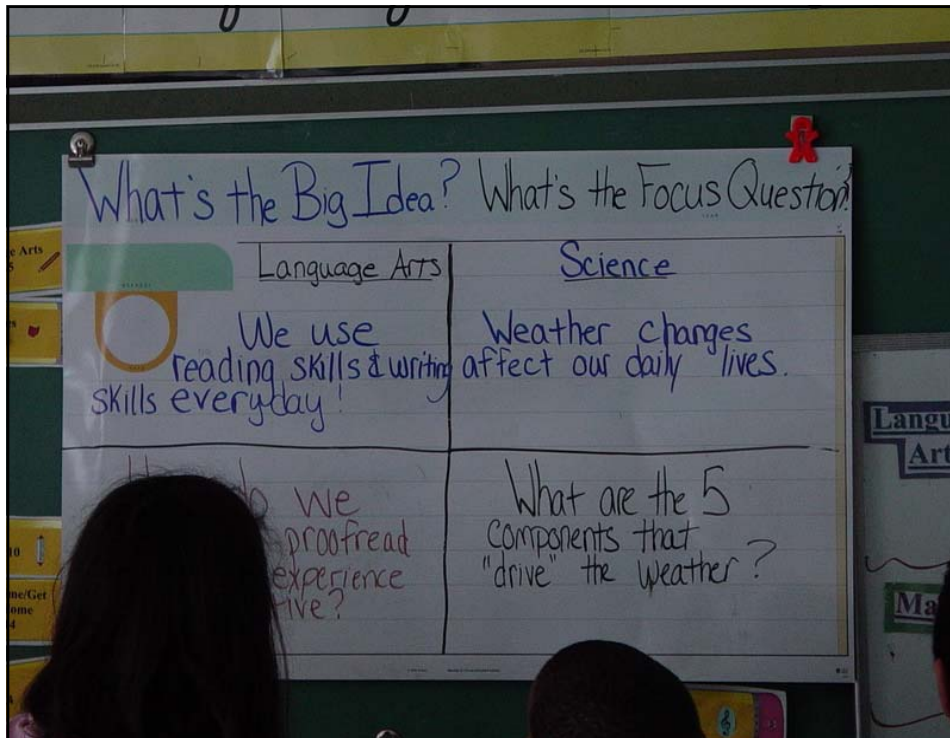 What's the Big Idea? What's the Focus Question?
Language Arts
We use
reading skills & writing
skills everyday!
Science
Weather changes
affect our daily lives.
we
proofread
experience
What are the 5
components that
"drive" the weather?
e Arts
10
me/Get
ome
4
Langu
Art
Ma